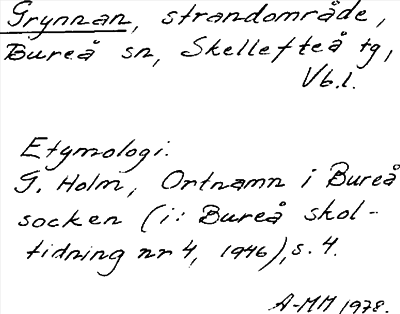 Grynnan, strandområde,
Bureå sn, Skellefteå tg,
Vb.l.
Etymologi:
G. Holm, Ortnamn i Bureå
socken (i: Bureå skol-
tidning nr 4, 1946), s. 4.
A-MM 1978.